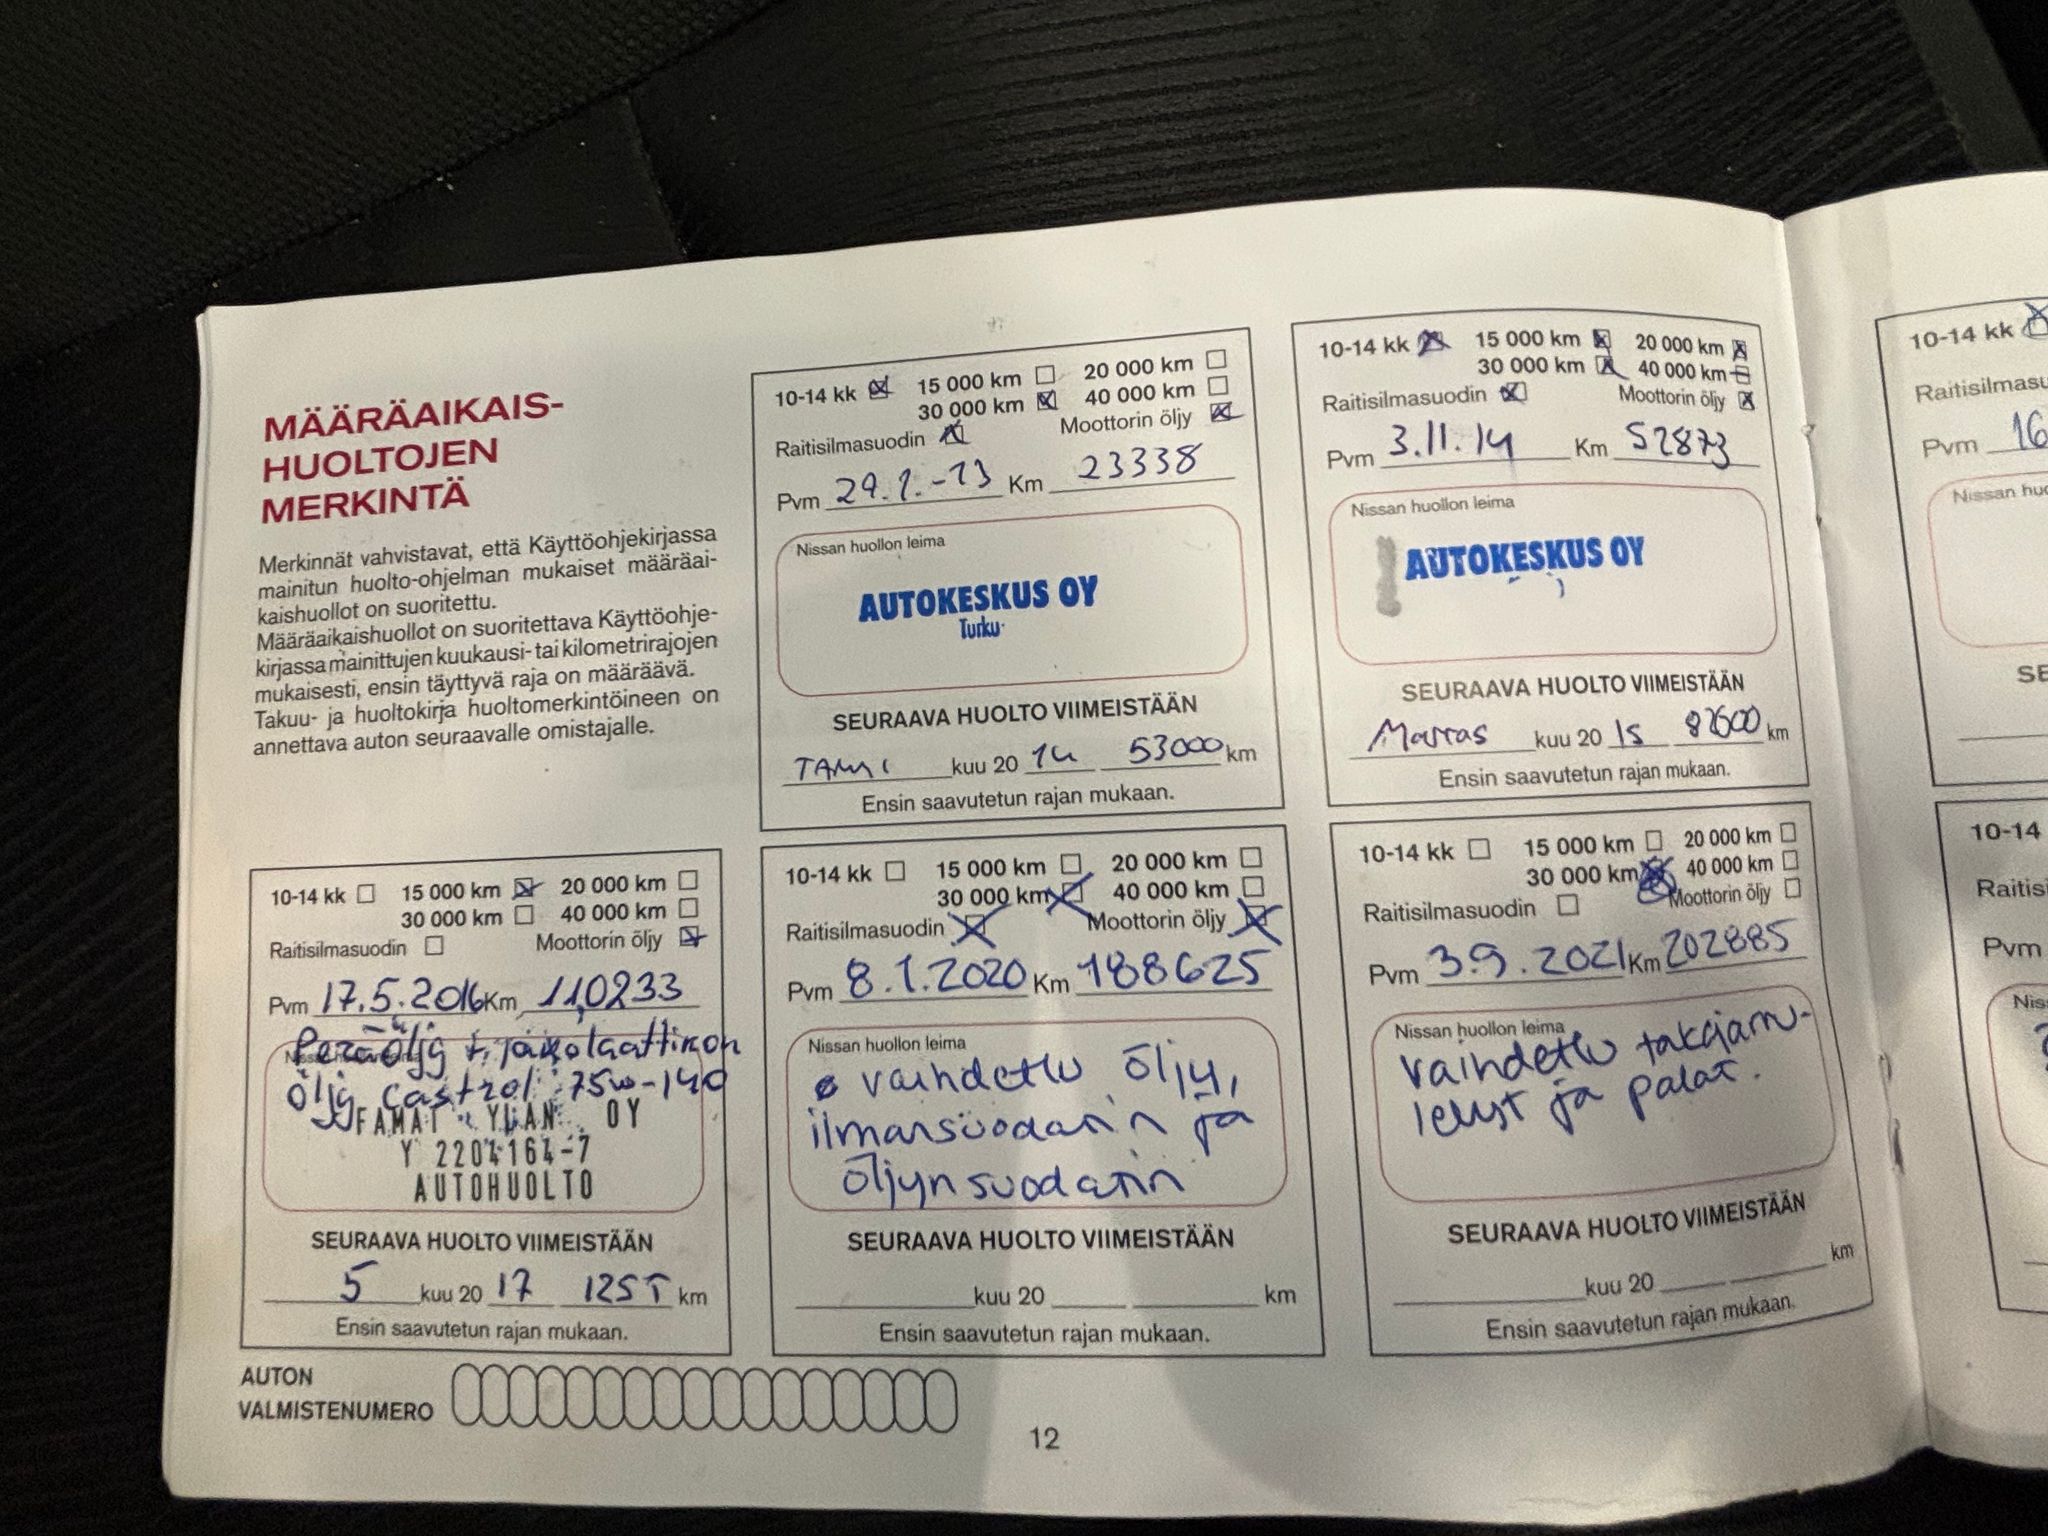 MÄÄRÄAIKAIS-
HUOLTOJEN
MERKINTÄ
Merkinnät vahvistavat, että Käyttöohjekirjassa
mainitun huolto-ohjelman mukaiset määräai-
kaishuollot on suoritettu.
Määräaikaishuollot on suoritettava Käyttöohje-
kirjassa mainittujen kuukausi- tai kilometrirajojen
mukaisesti, ensin täyttyvä raja on määräävä.
Takuu- ja huoltokirja huoltomerkintöineen on
annettava auton seuraavalle omistajalle.
10-14 kk 15 000 km 20 000 km
30 000 km 40 000 km
Raitisilmasuodin Moottorin öljy
Pvm 29.1.-13 Km 23338
Nissan huollon leima
AUTOKESKUS OY
Turku
SEURAAVA HUOLTO VIIMEISTÄÄN
TAMMI kuu 20 14 53000 km
Ensin saavutetun rajan mukaan.
10-14 kk 15 000 km 20 000 km
30 000 km 40 000 km
Raitisilmasuodin Moottorin öljy
Pvm 3.11.14 Km 52873
Nissan huollon leima
AUTOKESKUS OY
SEURAAVA HUOLTO VIIMEISTÄÄN
Marras kuu 20 15 82600 km
Ensin saavutetun rajan mukaan.
10-14 kk 15 000 km 20 000 km
30 000 km 40 000 km
Raitisilmasuodin Moottorin öljy
Pvm 17.5.2016 Km 110233
Peräöljy + jakolaatikon
öljy Castrol 75w-140
FAMAT YLÄN OY
Y 2204164-7
AUTOHUOLTO
SEURAAVA HUOLTO VIIMEISTÄÄN
5 kuu 20 17 125T km
Ensin saavutetun rajan mukaan.
10-14 kk 15 000 km 20 000 km
30 000 km 40 000 km
Raitisilmasuodin Moottorin öljy
Pvm 8.1.2020 Km 188625
Nissan huollon leima
vaihdettu öljy,
ilmansuodatin ja
öljynsuodatin
SEURAAVA HUOLTO VIIMEISTÄÄN
kuu 20 km
Ensin saavutetun rajan mukaan.
10-14 kk 15 000 km 20 000 km
30 000 km 40 000 km
Raitisilmasuodin Moottorin öljy
Pvm 3.9.2021 Km 202885
Nissan huollon leima
vaihdettu takajarru-
levyt ja palat.
SEURAAVA HUOLTO VIIMEISTÄÄN
kuu 20 km
Ensin saavutetun rajan mukaan.
AUTON
VALMISTENUMERO
12
10-14 kk
Raitisilmasu
Pvm 16
Nissan huo
SE
10-14
Raitisi
Pvm
Niss